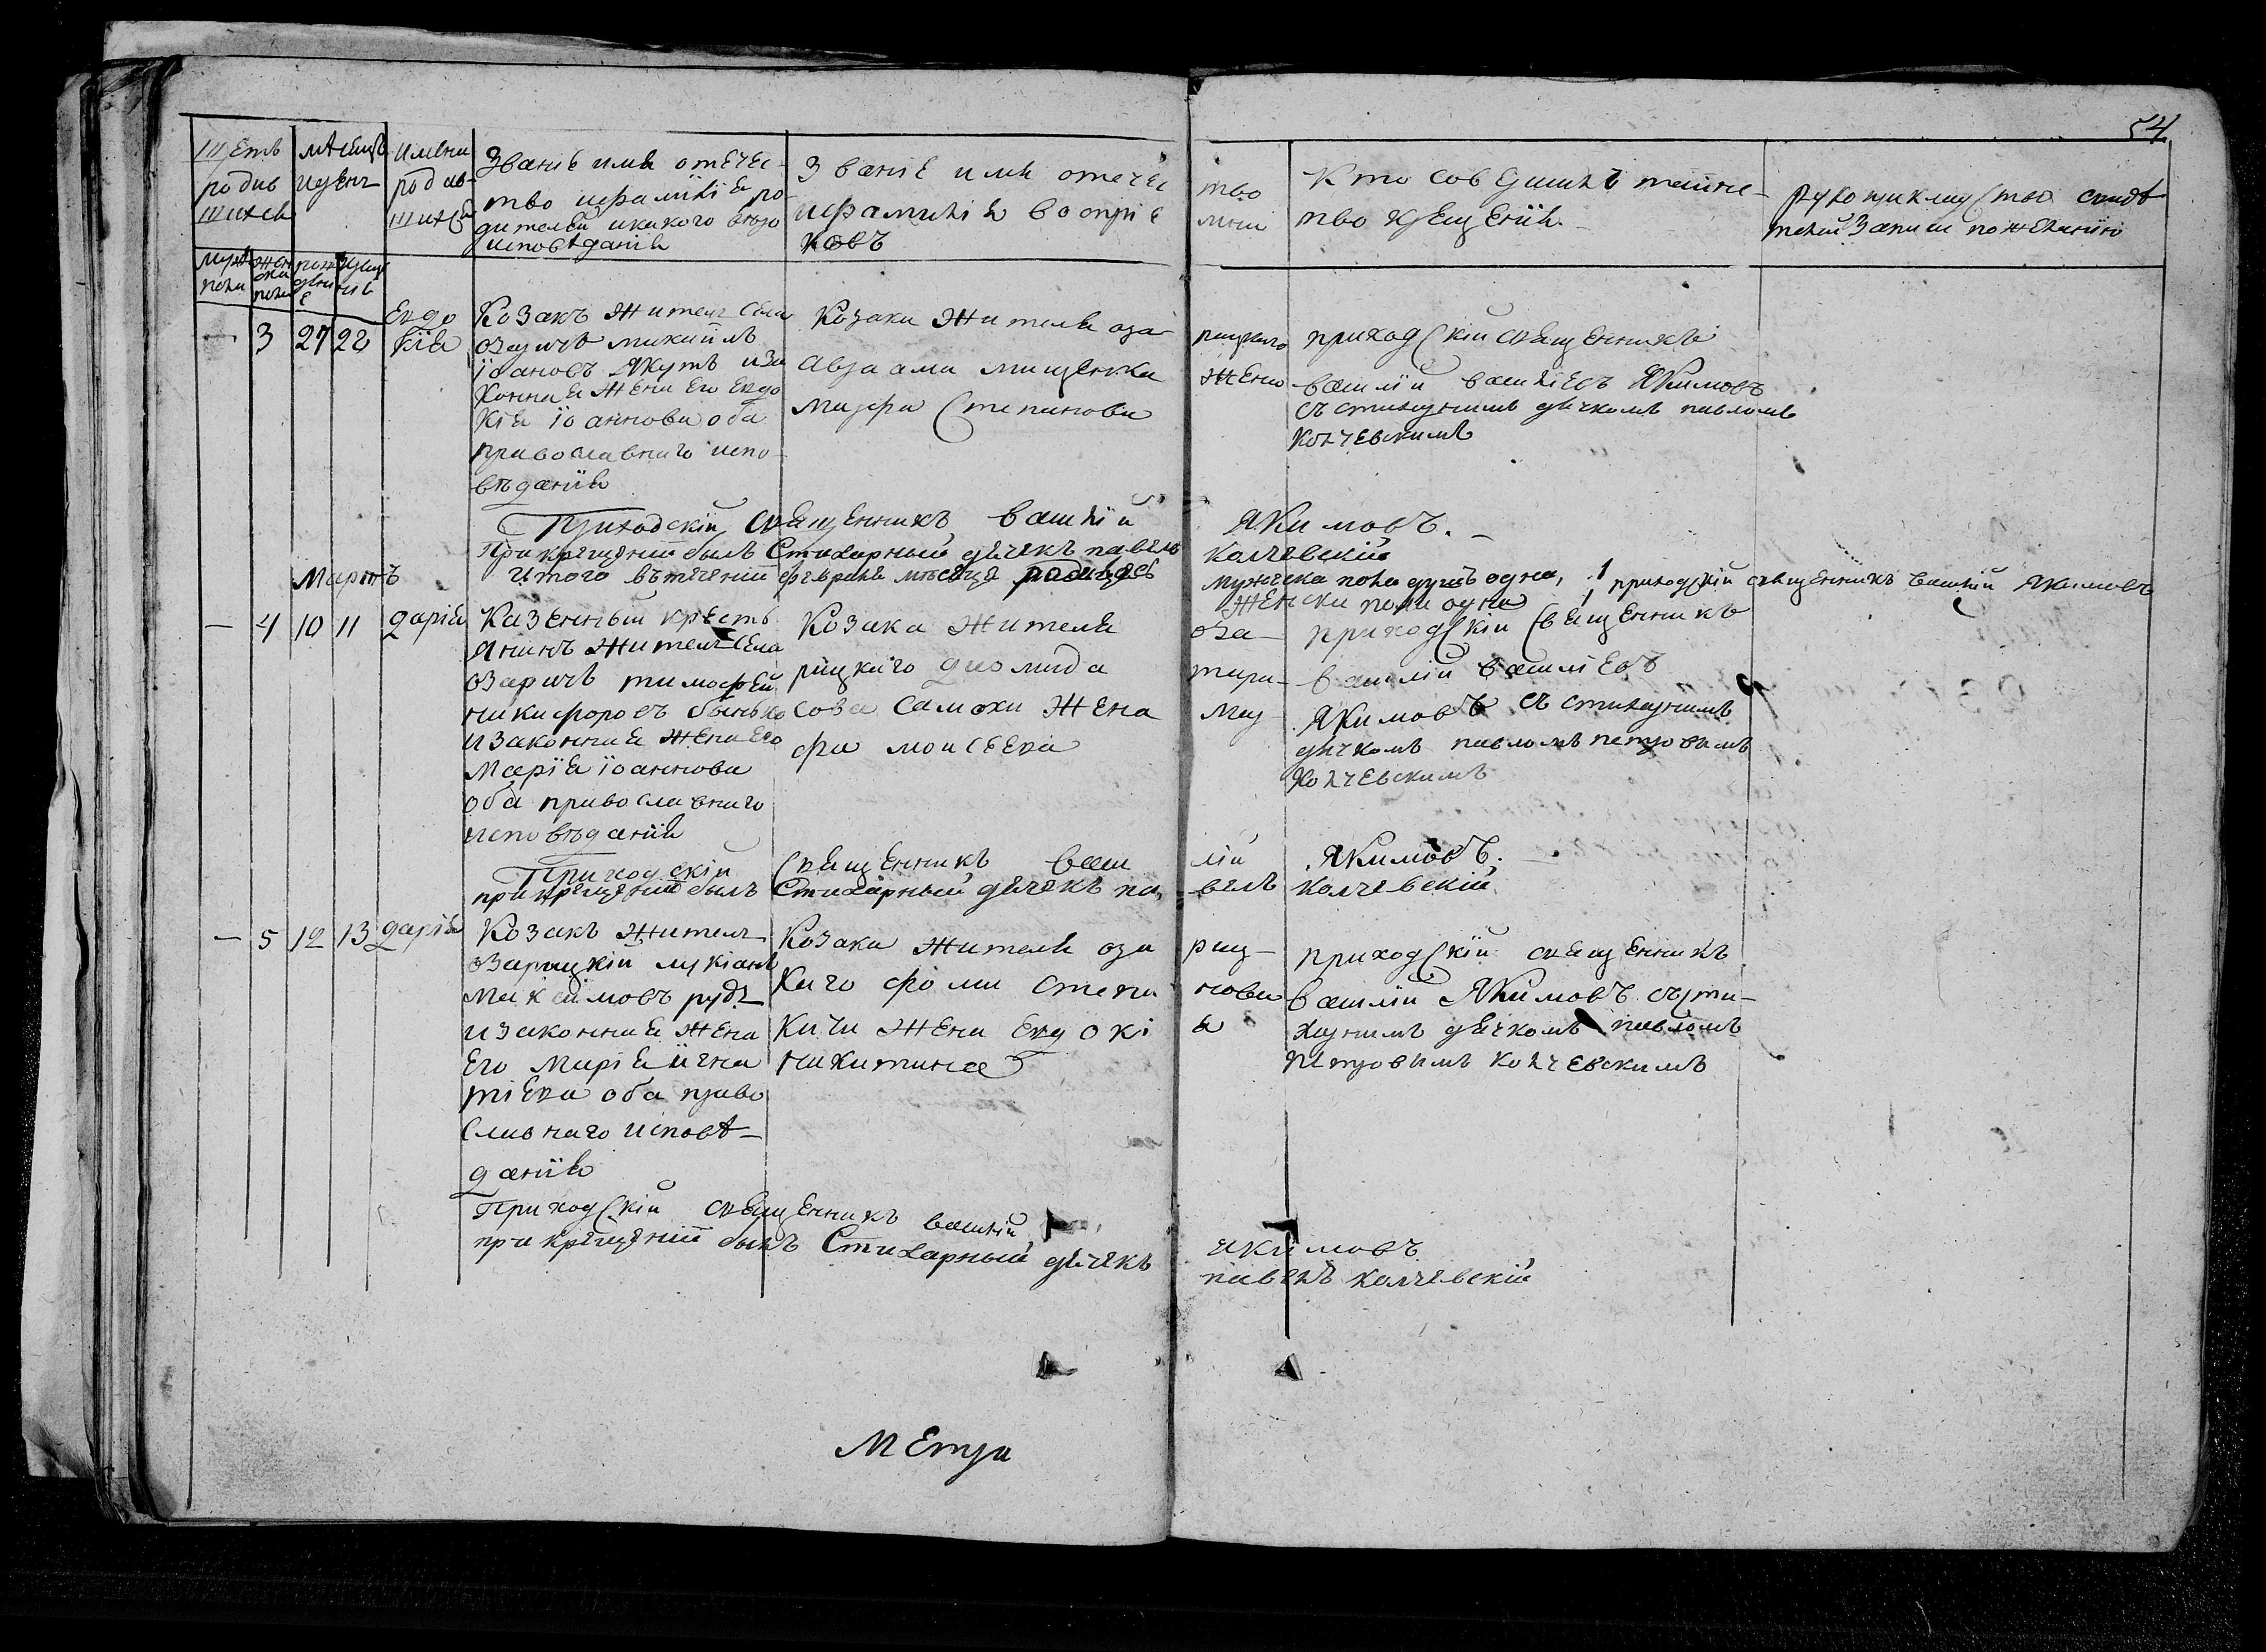 54.
Щетъ родив шихся
мѣсяцъ и день
имена родив шихся
Званіе имя отечес
тво и фамилія ро
дителей и какого вѣро
исповѣданія
Званіе имя отечес тво
и фамилія воспріе мни
ковъ
Кто совершилъ таинс
тво крещенія
Рукоприкладство свидѣ
телей записи по желанію
муж пола
женска пола
рож дені е
креще нія
— 3 27 28 Евдо кія
Козакъ житель села
Озаричъ Михаилъ
Іоановъ Якутъ и за
конная жена его Евдо
кія Іоаннова оба
православнаго испо
вѣданія
Козака жителя оза рицкаго
Авраама Мищенка жена
Марфа Степанова
приходскій священникъ
Василій Василіевъ Якимовъ
съ стихарнимъ дячкомъ Павломъ
Колчевскимъ
Приходскій священникъ Василій Якимовъ.
При крещеніи былъ Стихарный дячекъ Павелъ Колчевскій
Итого въ теченіи февраля мѣсяца родилось мужеска пола душъ одна, 1 приходскій священникъ Василій Якимовъ
женска пола одна
Мартъ
— 4 10 11 Дарія
Казенный кресть
янинъ житель села
Озаричъ Тимофей
Никифоровъ
и законная жена его
Марія Іоаннова
оба православнаго
исповѣданія
Козака жителя оза
рицкаго Диомида
сова Самохи жена Мар
фа Моисеева
приходскій священникъ
Василій Василіевъ
Якимовъ съ стихарнимъ
дячкомъ Павломъ Петровимъ
Колчевскимъ
Приходскій священникъ Васи лій Якимовъ.
при крещеніи былъ Стихарный дячекъ Па велъ Колчевскій
— 5 12 13 Дарія
Козакъ житель
озарицкій Лукіанъ
Максимовъ Рудъ
и законная жена
его Марія Игна
тіева оба право
славнаго исповѣ
данія
Козака жителя оза риц
каго Фоми Степа нова
жена Евдокі я
Никитина
приходскій священникъ
Василій Якимовъ съ сти
харнимъ дячкомъ Павломъ
Петровимъ Колчевскимъ
Приходскій священникъ Василій Якимовъ
при крещеніи былъ Стихарный дячекъ Павелъ Колчевскій
Метри